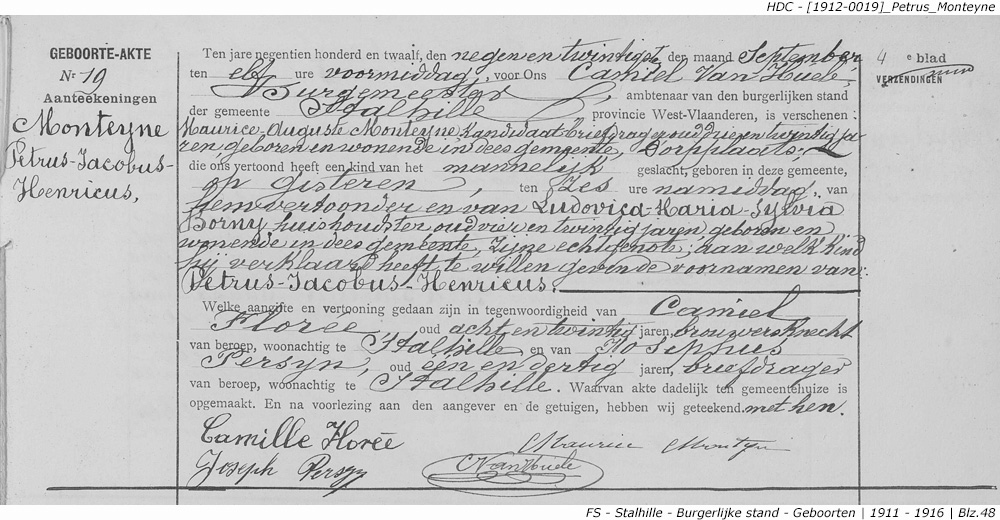 HDC - [1912-0019]_Petrus_Monteyne
GEBOORTE-AKTE
Nr 19
Aanteekeningen
Monteyne
Petrus-Jacobus-
Henricus,
Ten jare negentien honderd en twaalf, den negen en twintigste der maand September
ten elf ure voormiddag, voor Ons Camiel Van Huele,
Burgemeester, ambtenaar van den burgerlijken stand
der gemeente Stalhille provincie West-Vlaanderen, is verschenen:
Maurice-Auguste Monteyne, Kandidaat briefdrager oud zien twintig ja
ren, geboren en wonende in dees gemeente, Dorpplaats;
die ons vertoond heeft een kind van het mannelijk geslacht, geboren in deze gemeente,
op gisteren, ten zes ure namiddag, van
hem vertoonder en van Ludovica-Maria-Sylvia
Borny huishoudster oud vier en twintig jaren geboren en
wonende in dees gemeente, zijne echtgenote; aan welk kind
hij verklaard heeft te willen geven de voornamen van:
Petrus-Jacobus-Henricus.
Welke aangifte en vertooning gedaan zijn in tegenwoordigheid van Camiel
Floreé, oud acht en twintig jaren, brouwersknecht
van beroep, woonachtig te Stalhille en van Josephus
Persyn, oud een en dertig jaren, briefdrager
van beroep, woonachtig te Stalhille. Waarvan akte dadelijk ten gemeentehuize is
opgemaakt. En na voorlezing aan den aangever en de getuigen, hebben wij geteekend. met hen.
Camille Floreé
Maurice Monteyn
Joseph Persyn
C Van Huele
4e blad
VERZENDINGEN
FS - Stalhille - Burgerlijke stand - Geboorten | 1911 - 1916 | Blz.48